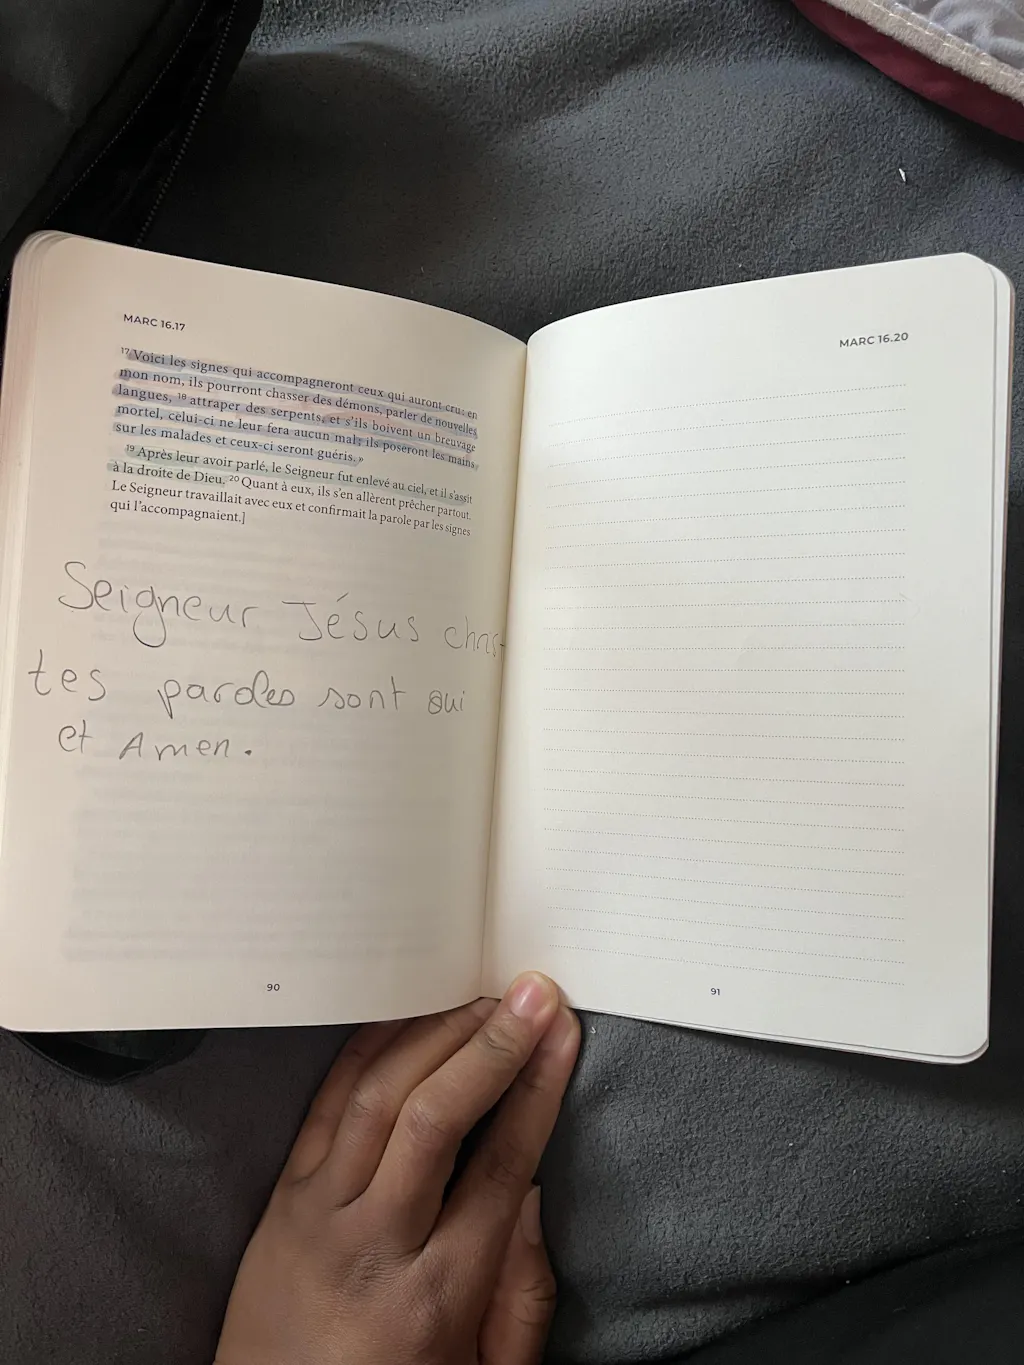 MARC 16.17
¹⁷ Voici les signes qui accompagneront ceux qui auront cru: en
mon nom, ils pourront chasser des démons, parler de nouvelles
langues, ¹⁸ attraper des serpents, et s'ils boivent un breuvage
mortel, celui-ci ne leur fera aucun mal; ils poseront les mains
sur les malades et ceux-ci seront guéris. »
¹⁹ Après leur avoir parlé, le Seigneur fut enlevé au ciel, et il s'assit
à la droite de Dieu. ²⁰ Quant à eux, ils s'en allèrent prêcher partout.
Le Seigneur travaillait avec eux et confirmait la parole par les signes
qui l'accompagnaient.]
Seigneur Jésus christ
tes paroles sont oui
et Amen.
90
MARC 16.20
91